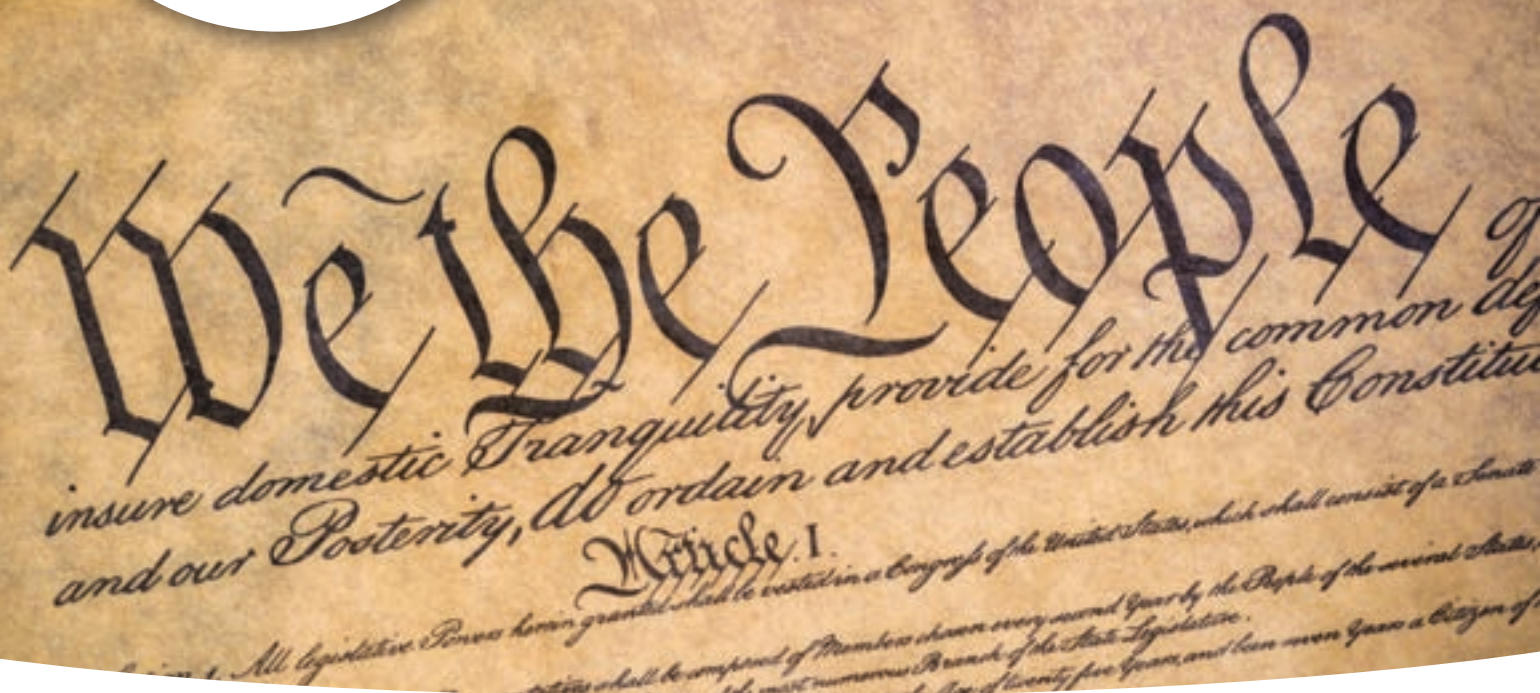 We the People of
insure domestic Tranquility, provide for the common def
and our Posterity, do ordain and establish this Constitu
Article. I.
All legislative Powers herein granted shall be vested in a Congress of the United States, which shall consist of a Senate
shall be composed of Members chosen every second Year by the People of the several States,
most numerous Branch of the State Legislature.
Age of twenty five Years, and been seven Years a Citizen of